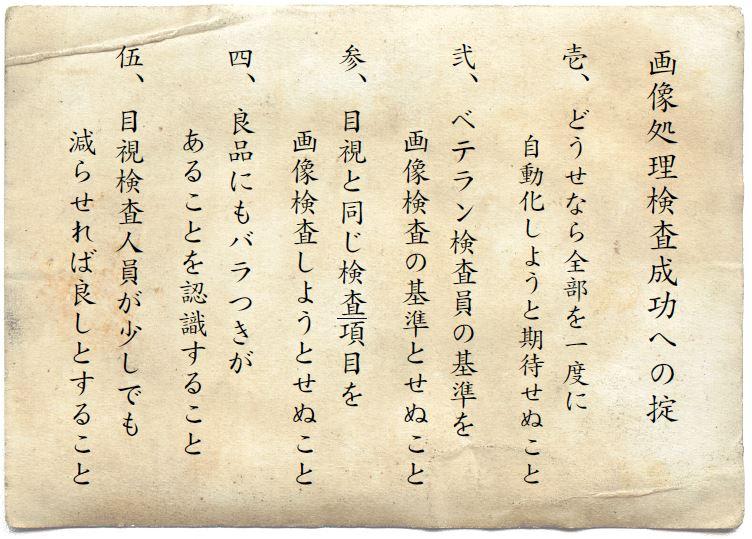 画像処理検査成功への掟
壱、どうせなら全部を一度に
自動化しようと期待せぬこと
弐、ベテラン検査員の基準を
画像検査の基準とせぬこと
参、目視と同じ検査項目を
画像検査しようとせぬこと
四、良品にもバラつきが
あることを認識すること
伍、目視検査人員が少しでも
減らせれば良しとすること